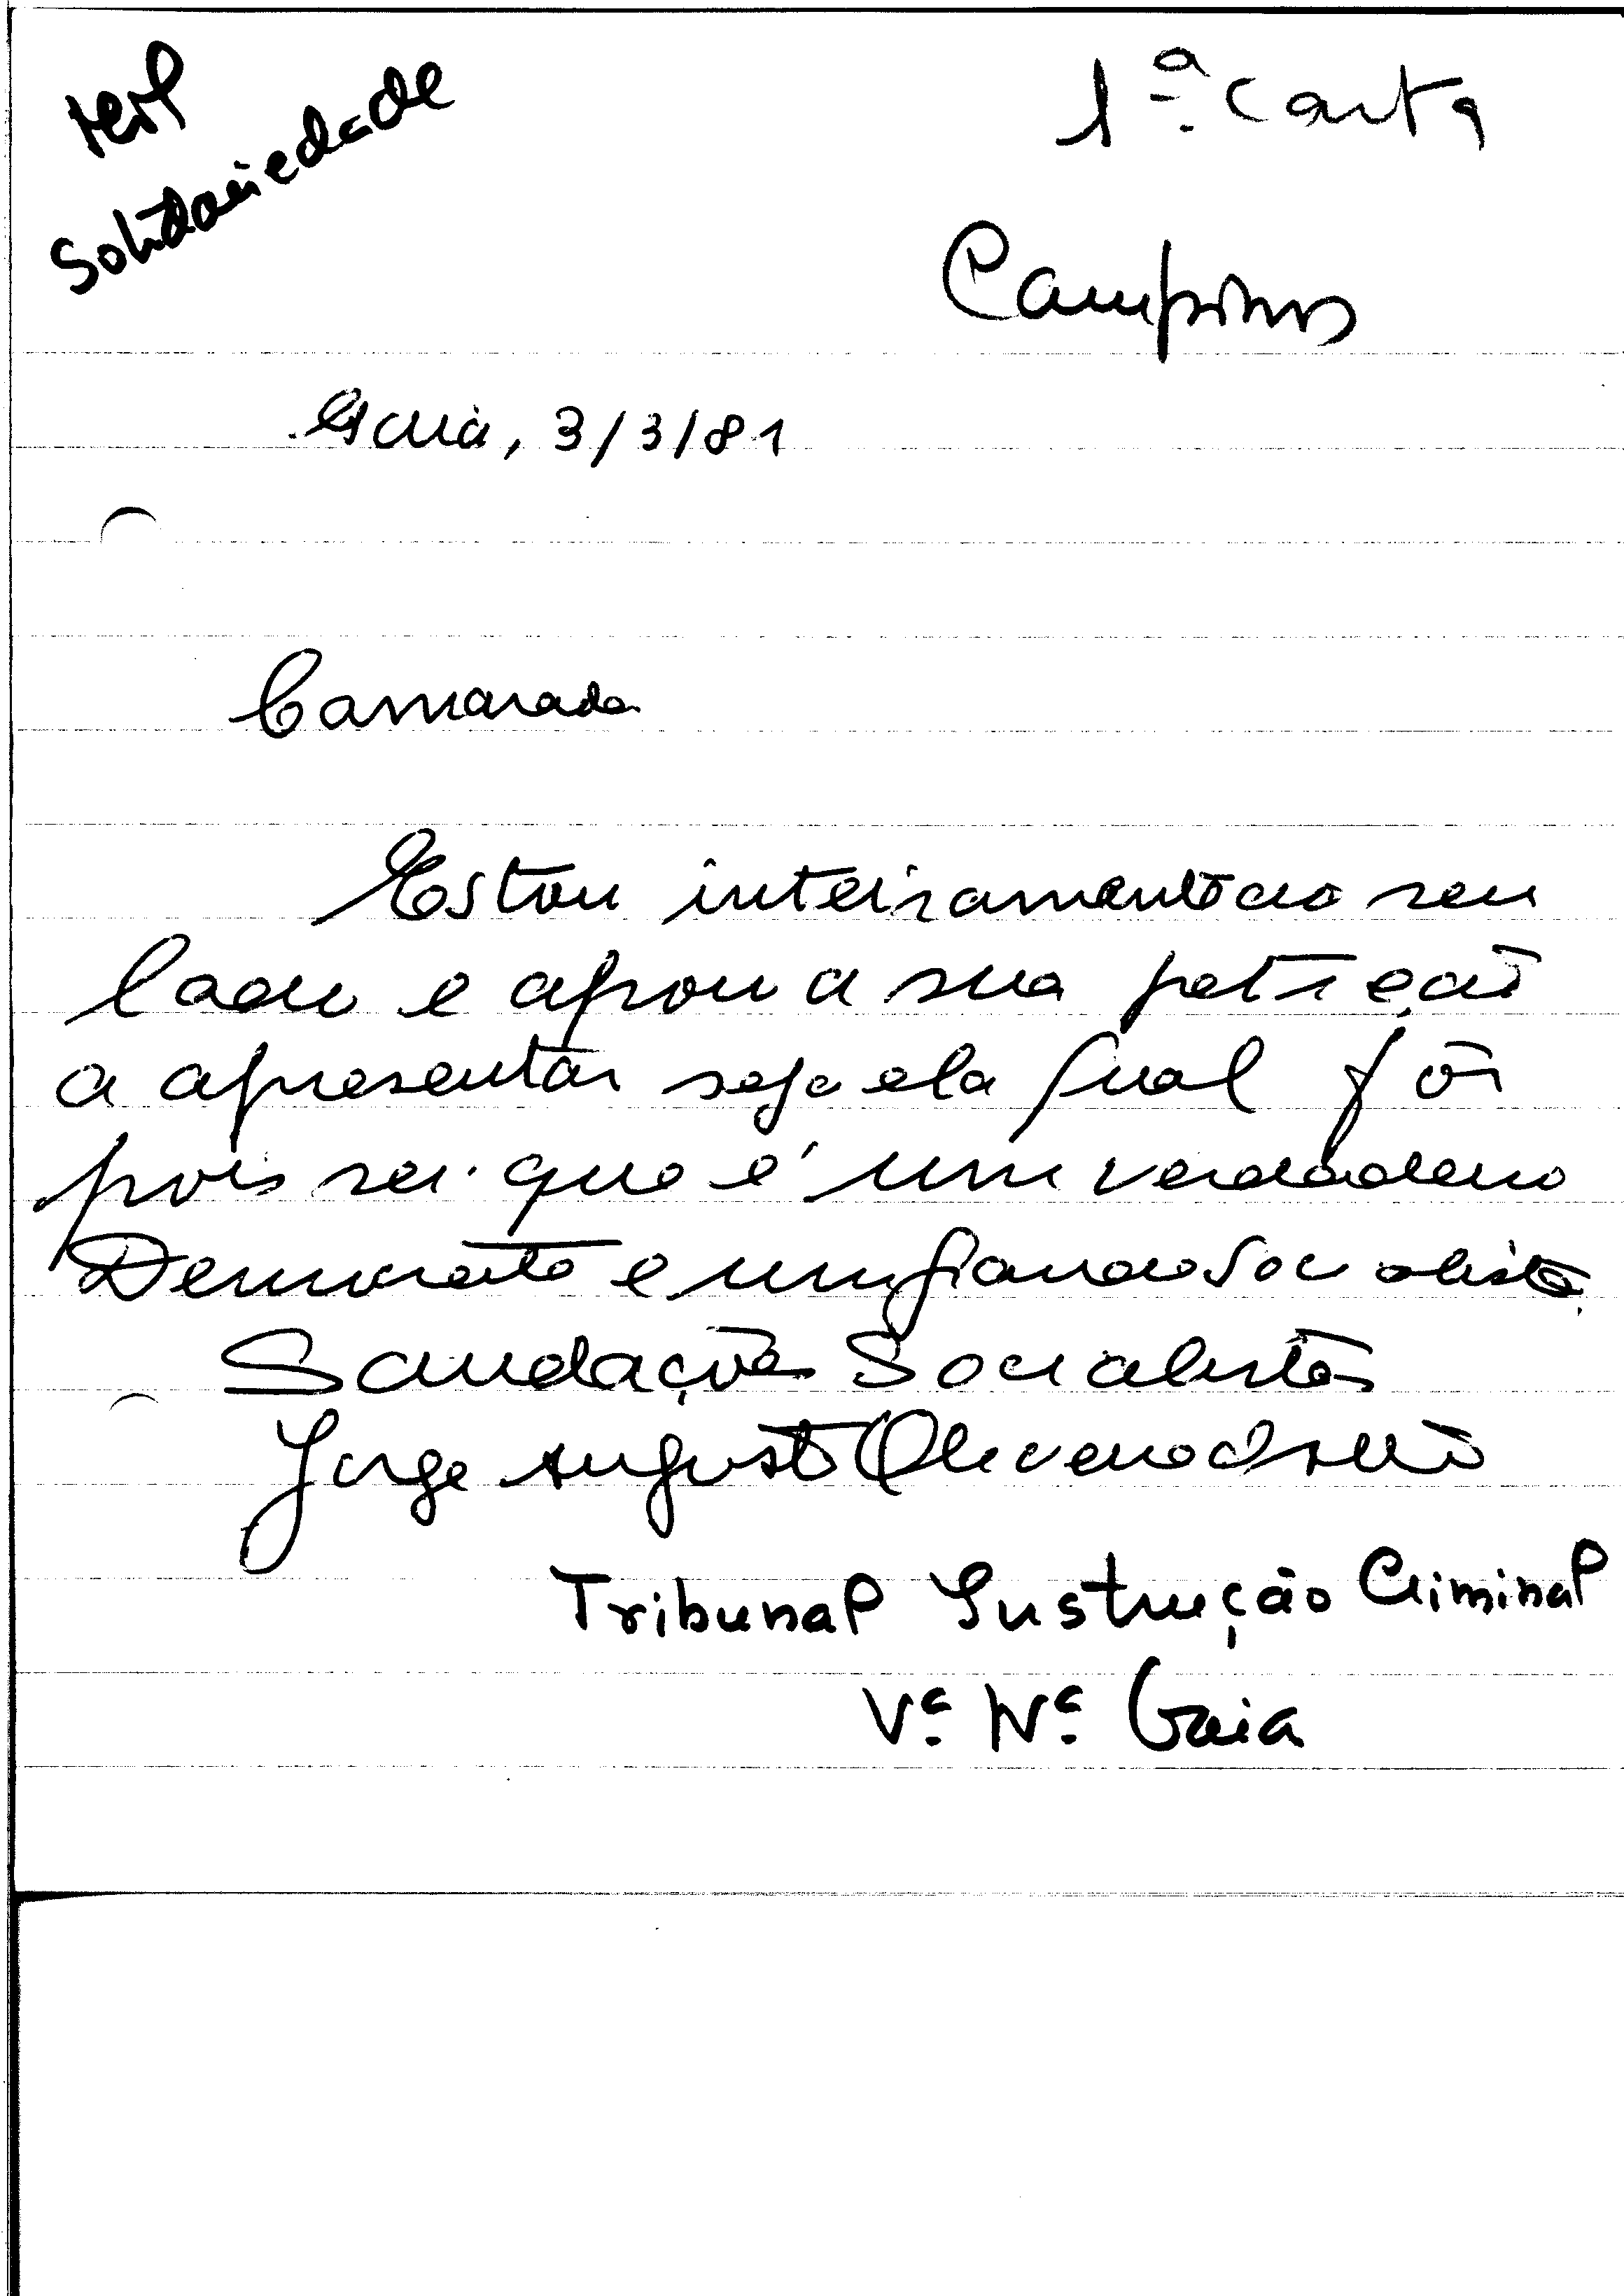 Solidariedade
1ª Carta
Campinos
Gaia, 3/3/81
Camarada
Estou inteiramente ao seu
lado e apoio a sua petição
a apresentar seja ela qual fôr
pois sei que é um verdadeiro
Democrata e um grande Socialista.
Saudações Socialistas
Jorge Augusto Oliveira
Tribunal Instrução Criminal
Vª Nª Gaia